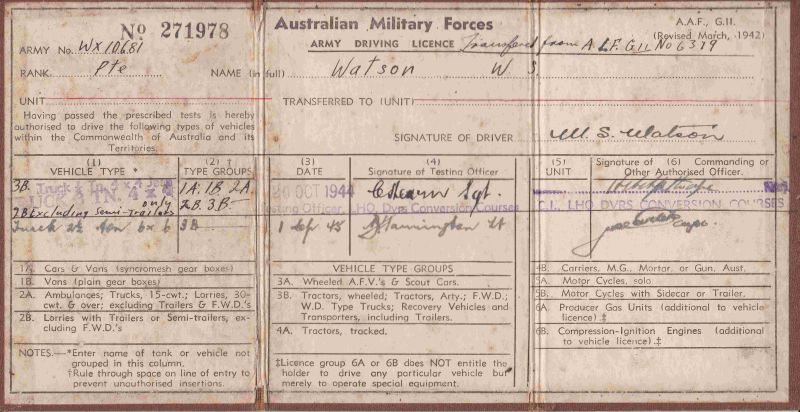 Nº 271978
Australian Military Forces
A.A.F., G.II.
(Revised March, 1942)
ARMY No. WX10681
ARMY DRIVING LICENCE Transfered from A.I.F. G II No 6389
RANK Pte
NAME (in full) Watson W. S.
UNIT
TRANSFERRED TO (UNIT)
Having passed the prescribed tests is hereby
authorised to drive the following types of vehicles
within the Commonwealth of Australia and its
Territories.
SIGNATURE OF DRIVER W. S. Watson
(1) VEHICLE TYPE *
(2) † TYPE GROUPS
(3) DATE
(4) Signature of Testing Officer
(5) UNIT
(6) Signature of Commanding or Other Authorised Officer.
3B. Truck
1A. 1B. 2A
20 OCT 1944
Sgt.
only
2B Excluding Semi-Trailers
2B. 3B
Testing Officer, LHQ Dvrs Conversion Courses
C.I. LHQ DVRS CONVERSION COURSES
Truck 2½ ton 6x6
3B
1 Sep 45
Lt
Capt.
1A. Cars & Vans (syncromesh gear boxes)
1B. Vans (plain gear boxes)
2A. Ambulances; Trucks, 15-cwt.; Lorries, 30-
cwt. & over; excluding Trailers & F.W.D.'s
2B. Lorries with Trailers or Semi-trailers, ex-
cluding F.W.D.'s
NOTES.—*Enter name of tank or vehicle not
grouped in this column.
†Rule through space on line of entry to
prevent unauthorised insertions.
VEHICLE TYPE GROUPS
3A. Wheeled A.F.V.'s & Scout Cars.
3B. Tractors, wheeled; Tractors, Arty.; F.W.D.;
W.D. Type Trucks; Recovery Vehicles and
Transporters, including Trailers.
4A. Tractors, tracked.
‡Licence group 6A or 6B does NOT entitle the
holder to drive any particular vehicle but
merely to operate special equipment.
4B. Carriers, M.G., Mortar, or Gun, Aust.
5A. Motor Cycles, solo
5B. Motor Cycles with Sidecar or Trailer.
6A. Producer Gas Units (additional to vehicle
licence).‡
6B. Compression-Ignition Engines (additional
to vehicle licence).‡